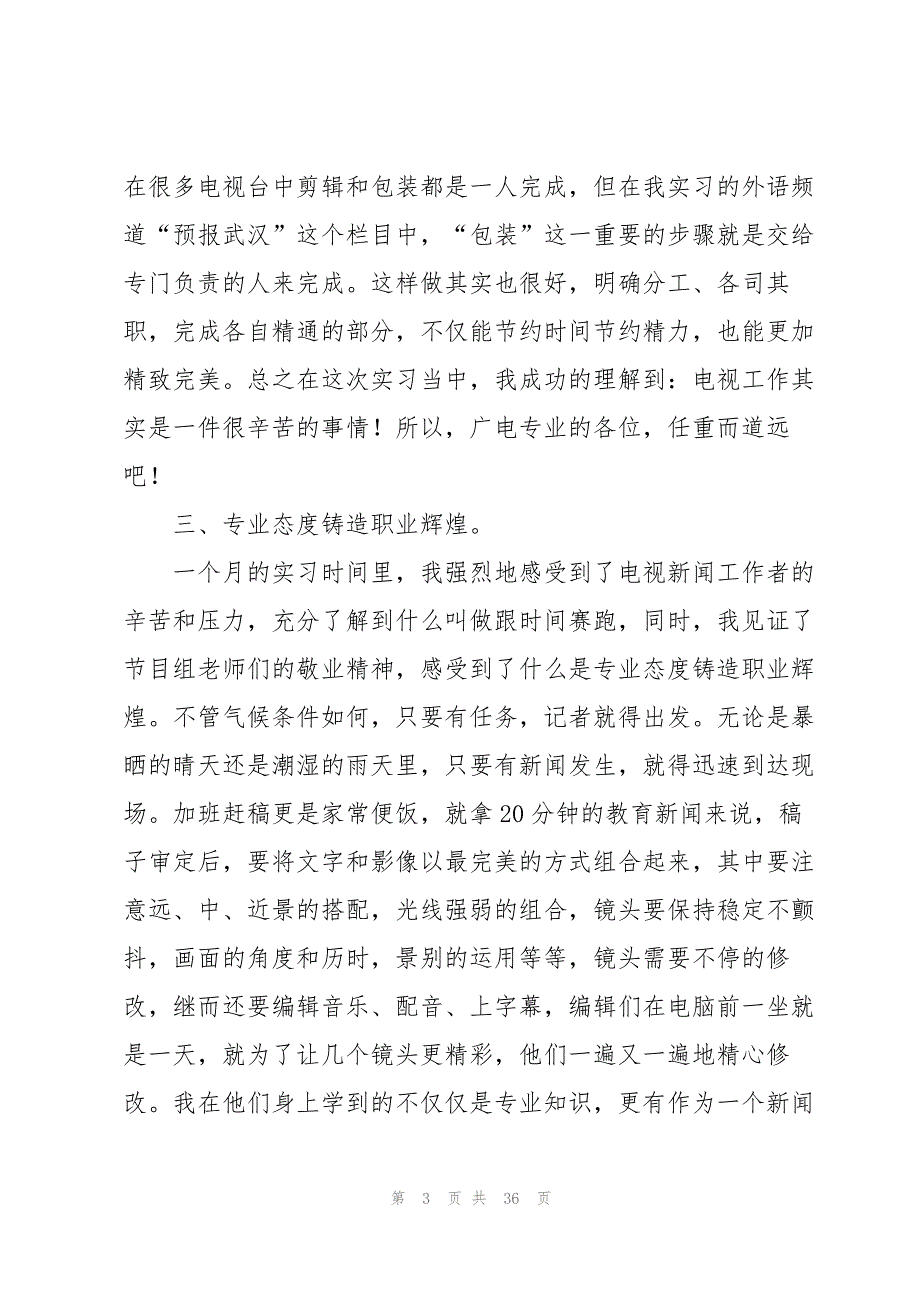 在很多电视台中剪辑和包装都是一人完成，但在我实习的外语频
道“预报武汉”这个栏目中，“包装”这一重要的步骤就是交给
专门负责的人来完成。这样做其实也很好，明确分工、各司其
职，完成各自精通的部分，不仅能节约时间节约精力，也能更加
精致完美。总之在这次实习当中，我成功的理解到：电视工作其
实是一件很辛苦的事情！所以，广电专业的各位，任重而道远
吧！
三、专业态度铸造职业辉煌。
一个月的实习时间里，我强烈地感受到了电视新闻工作者的
辛苦和压力，充分了解到什么叫做跟时间赛跑，同时，我见证了
节目组老师们的敬业精神，感受到了什么是专业态度铸造职业辉
煌。不管气候条件如何，只要有任务，记者就得出发。无论是暴
晒的晴天还是潮湿的雨天里，只要有新闻发生，就得迅速到达现
场。加班赶稿更是家常便饭，就拿20分钟的教育新闻来说，稿
子审定后，要将文字和影像以最完美的方式组合起来，其中要注
意远、中、近景的搭配，光线强弱的组合，镜头要保持稳定不颤
抖，画面的角度和历时，景别的运用等等，镜头需要不停的修
改，继而还要编辑音乐、配音、上字幕，编辑们在电脑前一坐就
是一天，就为了让几个镜头更精彩，他们一遍又一遍地精心修
改。我在他们身上学到的不仅仅是专业知识，更有作为一个新闻
第 3 页 共 36 页